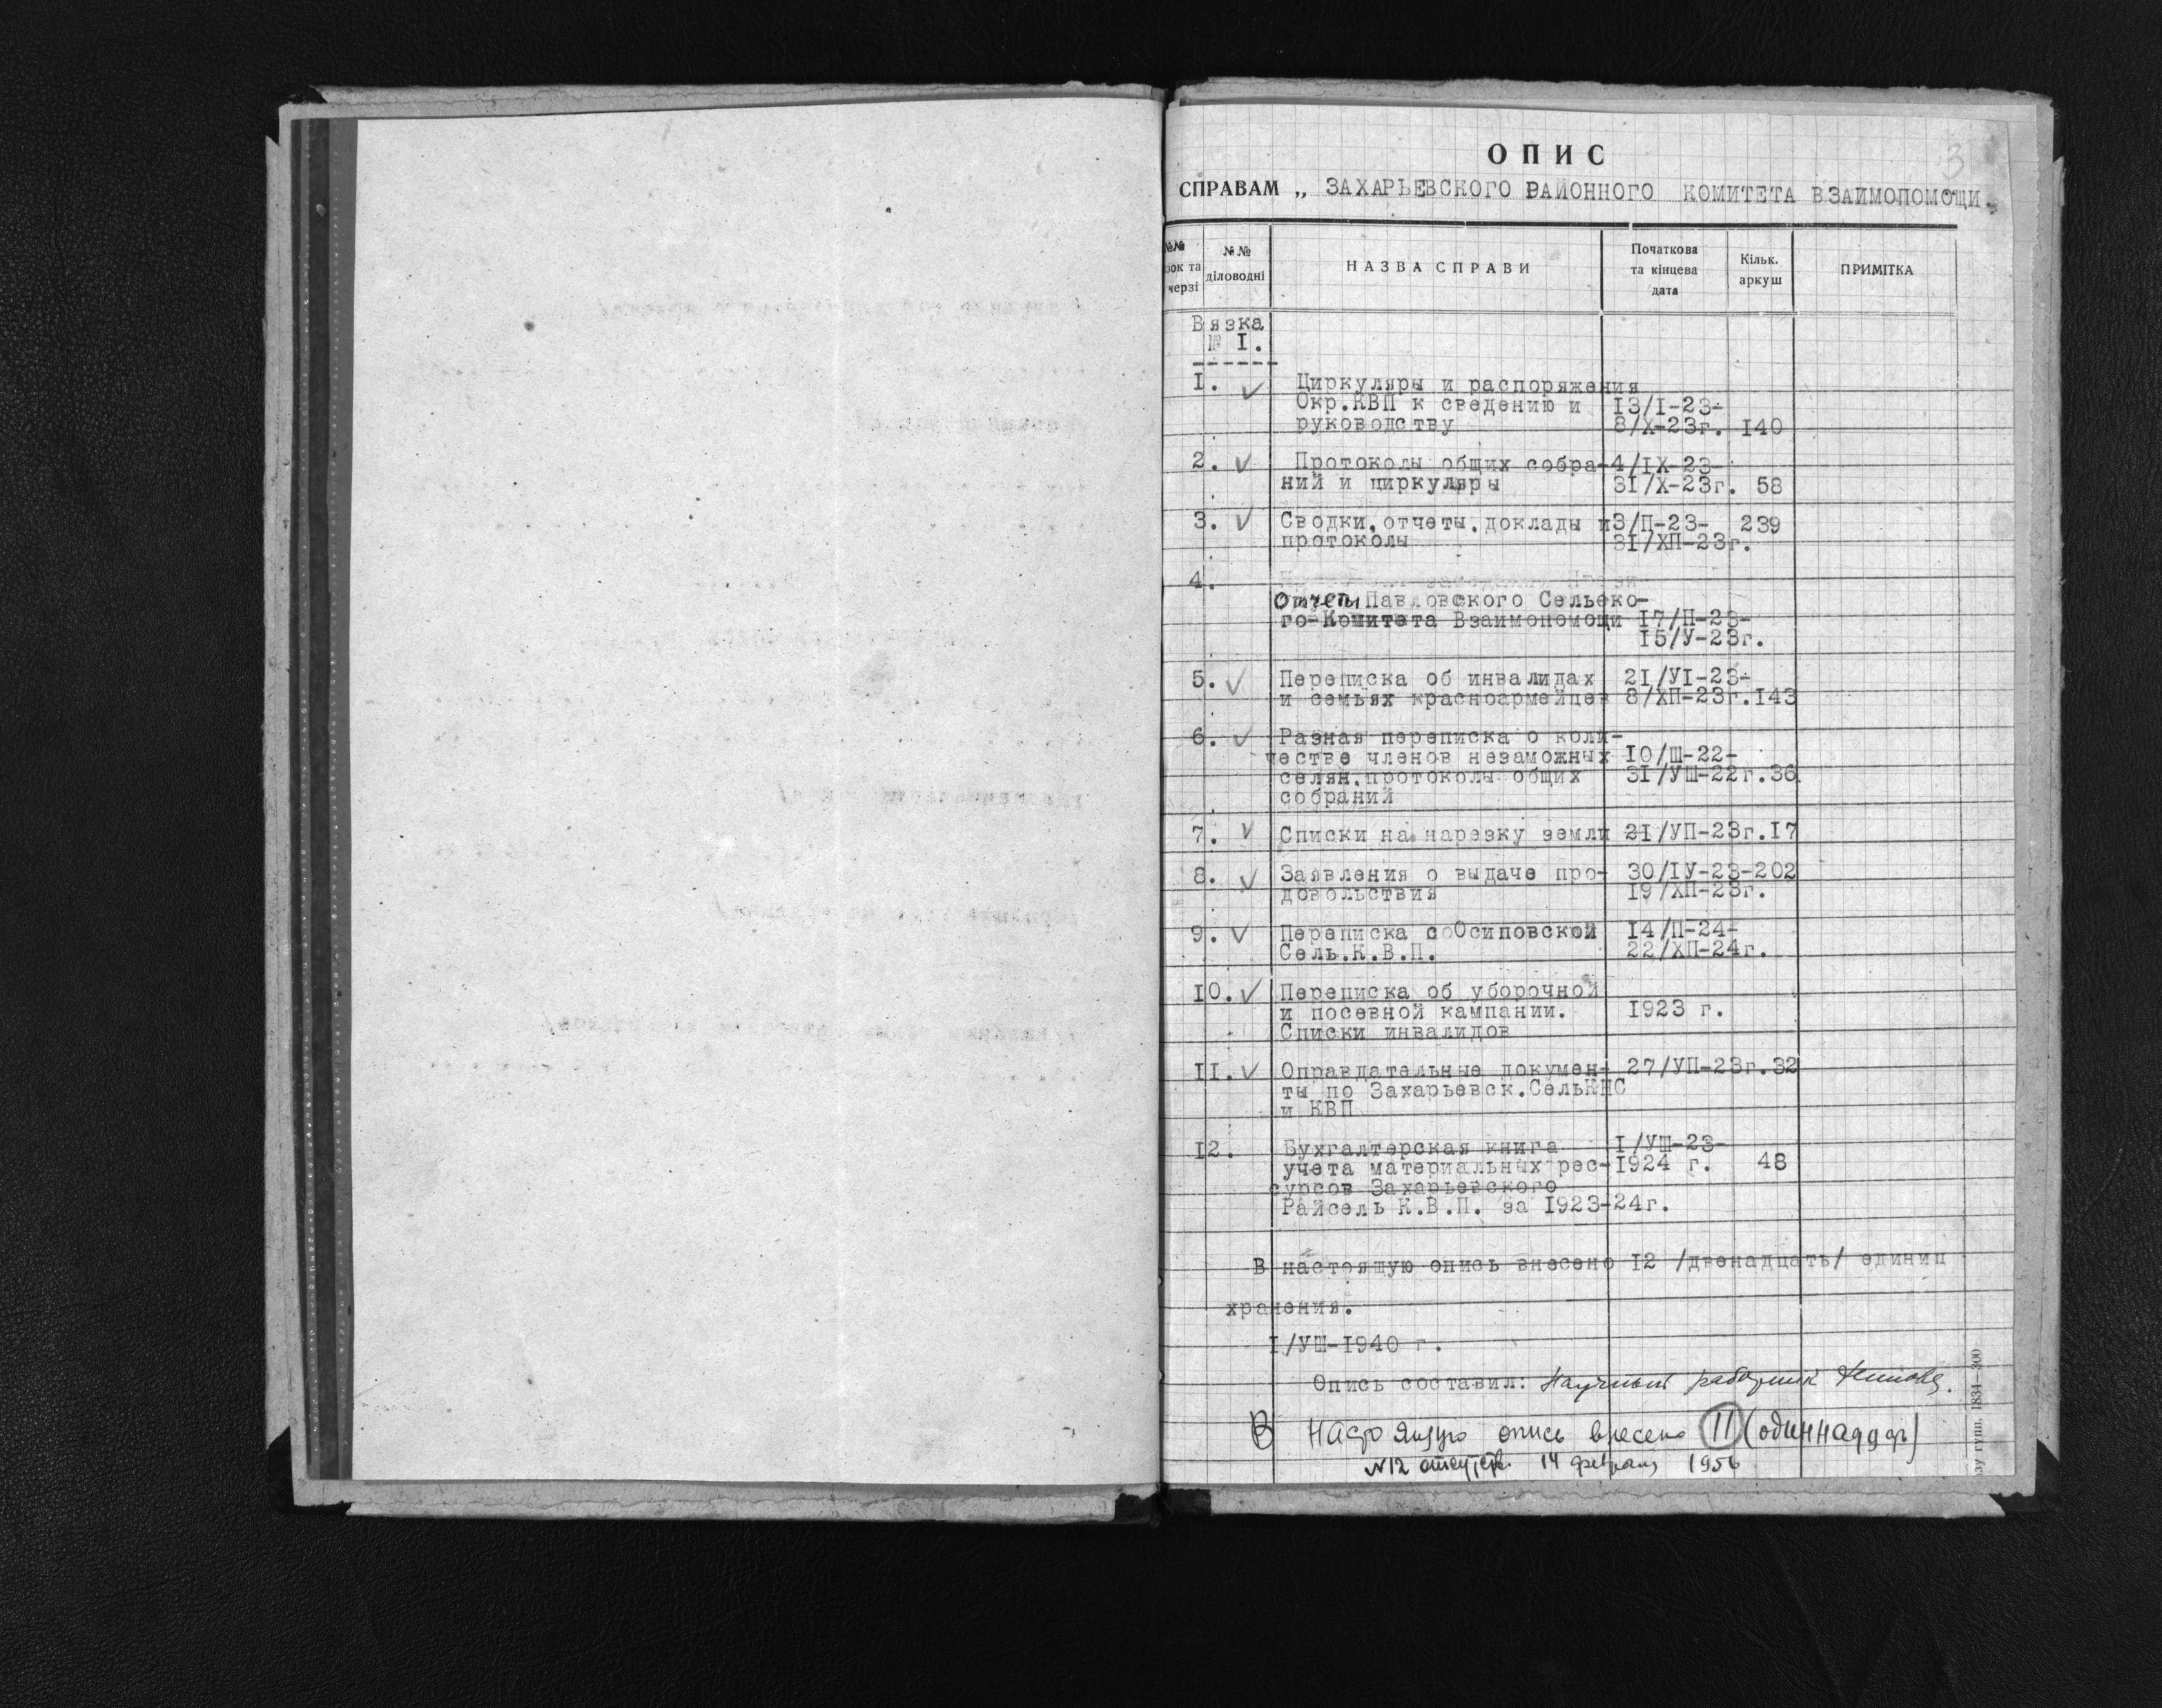 3
ОПИС
СПРАВАМ „ ЗАХАРЬЕВСКОГО РАЙОННОГО КОМИТЕТА ВЗАИМОПОМОЩИ.
№№ зок та черзі
№№ діловодні
НАЗВА СПРАВИ
Початкова та кінцева дата
Кільк. аркуш
ПРИМІТКА
Вязка
№ I.
I. ✓ Циркуляры и распоряжения
Окр.КВП к сведению и 13/I-23-
руководству 8/X-23г. 140
2. ✓ Протоколы общих собра- 4/IX-23-
ний и циркуляры 31/X-23г. 58
3. ✓ Сводки,отчеты,доклады и 3/П-23- 239
протоколы 31/ХП-23г.
4.
Отчеты Павловского Сельско-
го-Комитета Взаимопомощи 17/П-23-
15/У-23г.
5. ✓ Переписка об инвалидах 21/УI-23-
и семьях красноармейцев 8/ХП-23г. 143
6. ✓ Разная переписка о коли-
честве членов незаможных 10/Ш-22-
селян,протоколы общих 31/УШ-22г. 36
собраний
7. ✓ Списки на нарезку земли 21/УП-23г. 17
8. ✓ Заявления о выдаче про- 30/IУ-23- 202
довольствия 19/ХП-23г.
9. ✓ Переписка с Осиповской 14/П-24-
Сель.К.В.П. 22/ХП-24г.
10. ✓ Переписка об уборочной
и посевной кампании. 1923 г.
Списки инвалидов
II. ✓ Оправдательные докумен- 27/УП-23г. 32
ты по Захарьевск.СельКНС
и КВП
12. Бухгалтерская книга I/УШ-23-
учета материальных рес- 1924 г. 48
сурсов Захарьевского
Райсель К.В.П. за 1923-24г.
В настоящую опись внесено 12 /двенадцать/ единиц
хранения.
I/УШ-1940 г.
Опись составил: Научный работник
В настоящую опись внесено 11 (одиннаддть)
№12 отсутств. 14 февраля 1956
зу гупп. 1834—300